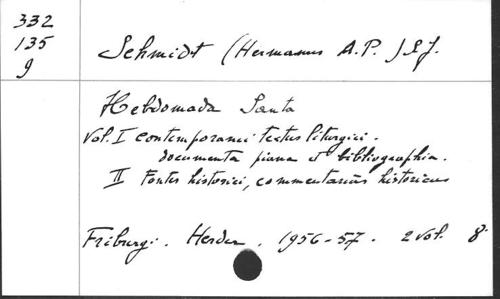 332
135
9
Schmidt (Hermanus A.P.) S.J.
Hebdomada Santa
Vol. I contemporanei textus liturgici.
documenta piana et bibliographia.
II Fontes historici, commentarius historicus
Friburgi. Herder. 1956-57. 2 vol. 8°